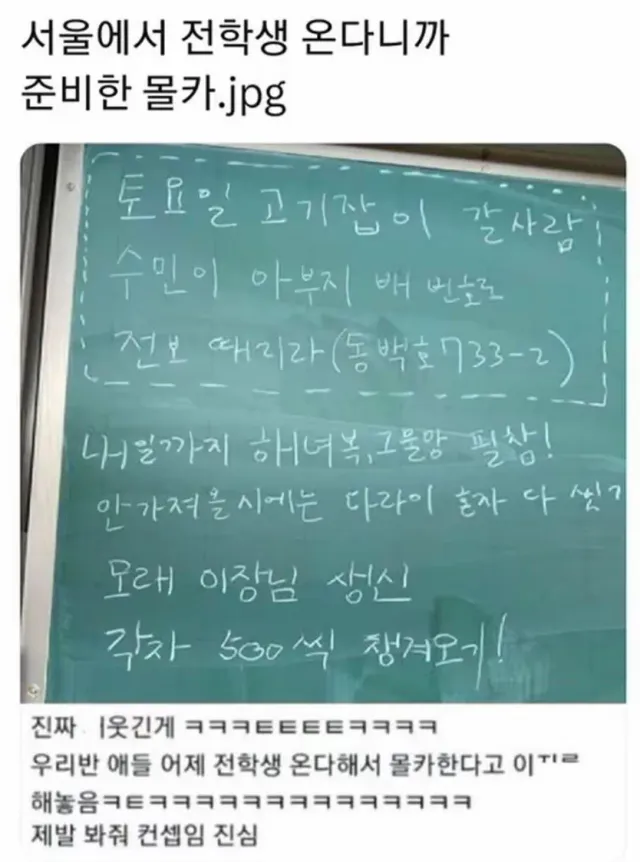 서울에서 전학생 온다니까
준비한 몰카.jpg
토요일 고기잡이 갈사람
수민이 아부지 배 번호로
전보 때리라(동백호733-2)
내일까지 해녀복,그물망 필참!
안가져올시에는 다라이 혼자 다 씻기
모래 이장님 생신
각자 500씩 챙겨오기!
진짜 웃긴게 ㅋㅋㅋㅌㅌㅌㅌㅋㅋㅋㅋ
우리반 애들 어제 전학생 온다해서 몰카한다고
해놓음ㅋㅌㅋㅋㅋㅋㅋㅋㅋㅋㅋㅋㅋㅋㅋㅋㅋ
제발 봐줘 컨셉임 진심